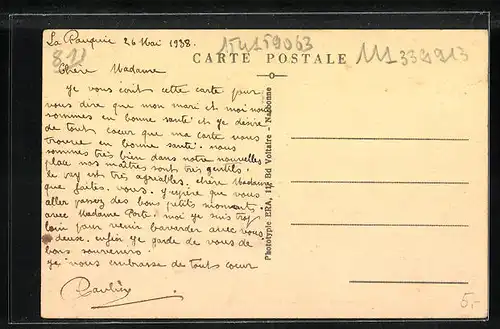 La Pauquie 26 Mai 1938.
CARTE POSTALE
Chère Madame
je vous écrit cette carte pour
vous dire que mon mari et moi nous
sommes en bonne santé et je désire
de tout coeur que ma carte vous
trouve en bonne santé. nous
sommes très bien dans notre nouvelles
place nos maîtres sont très gentils.
le pay est très agréables. chère Madame
que faites. vous. j'espère que vous
aller passez des bons petits moment.
avec Madame Porte. moi je suis trop
loin pour venir bavarder avec vous
deux. enfin je garde de vous de
bons souvenirs.
je vous embrasse de tout coeur
Phototypie ERA, 112 Bd Voltaire - Narbonne
5.-